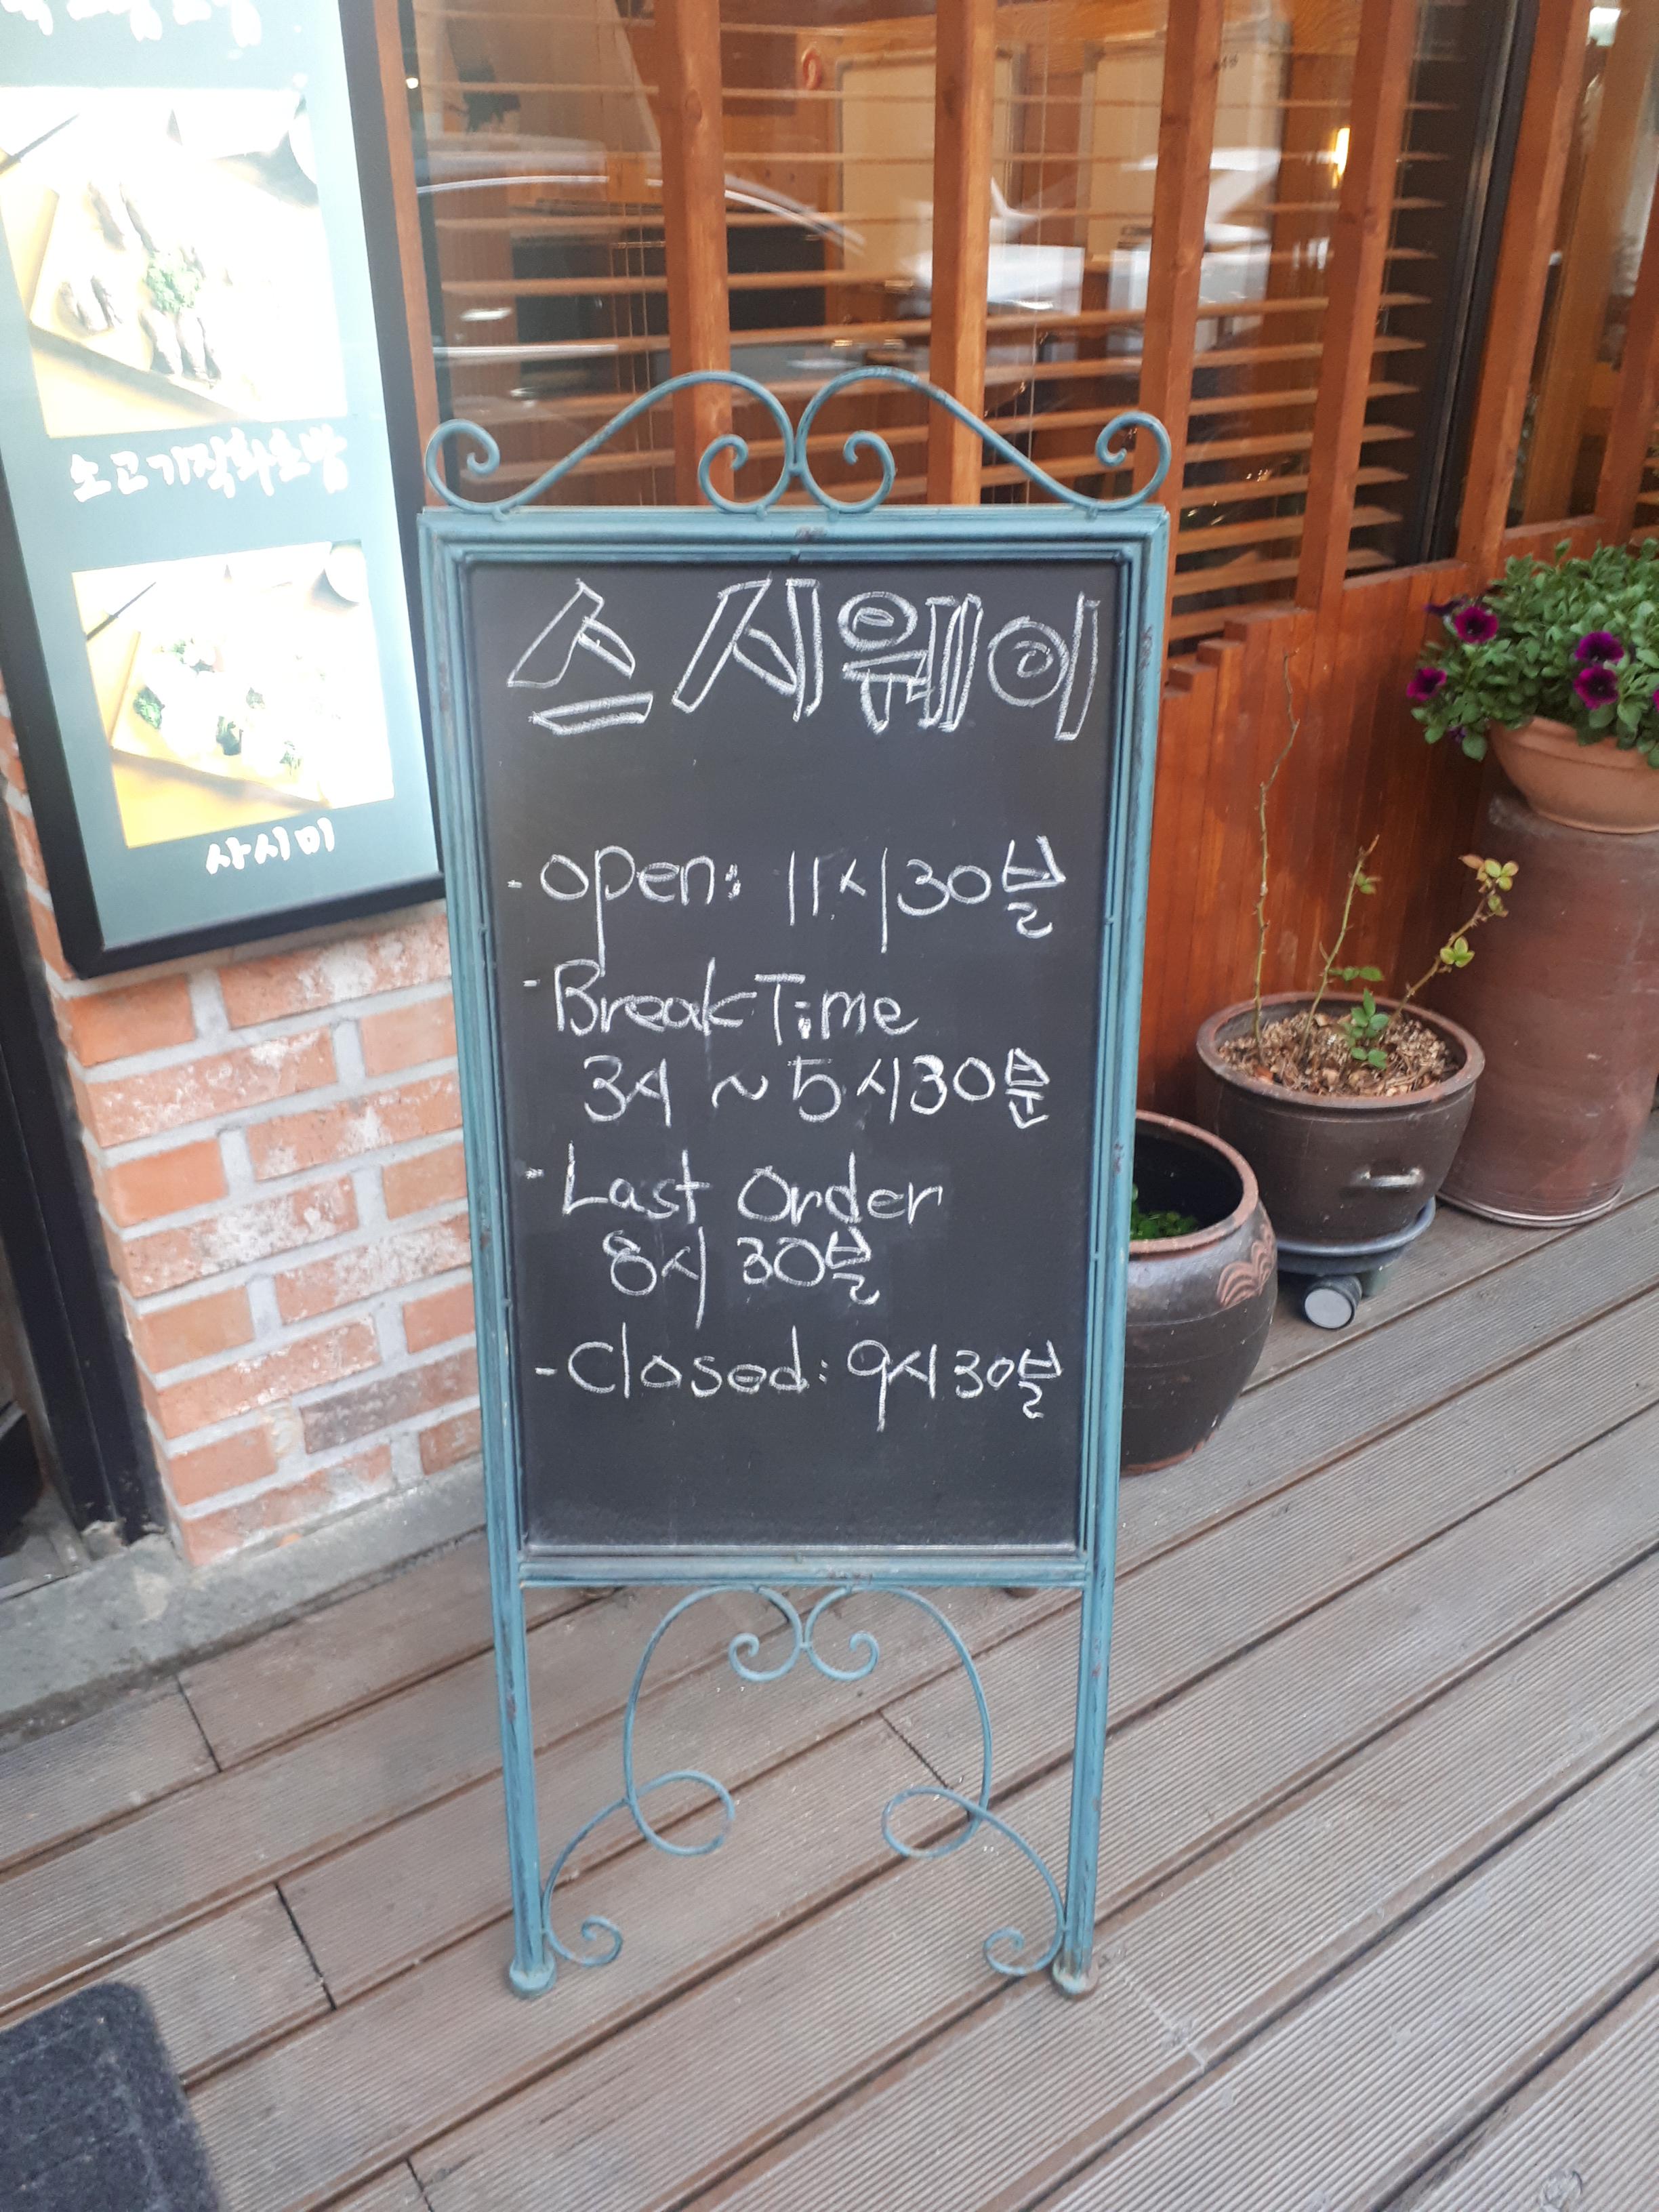 소고기직화초밥
사시미
스시웨이
- open: 11시30분
- Break Time
3시 ~ 5시30분
- Last Order
8시 30분
- Closed: 9시30분